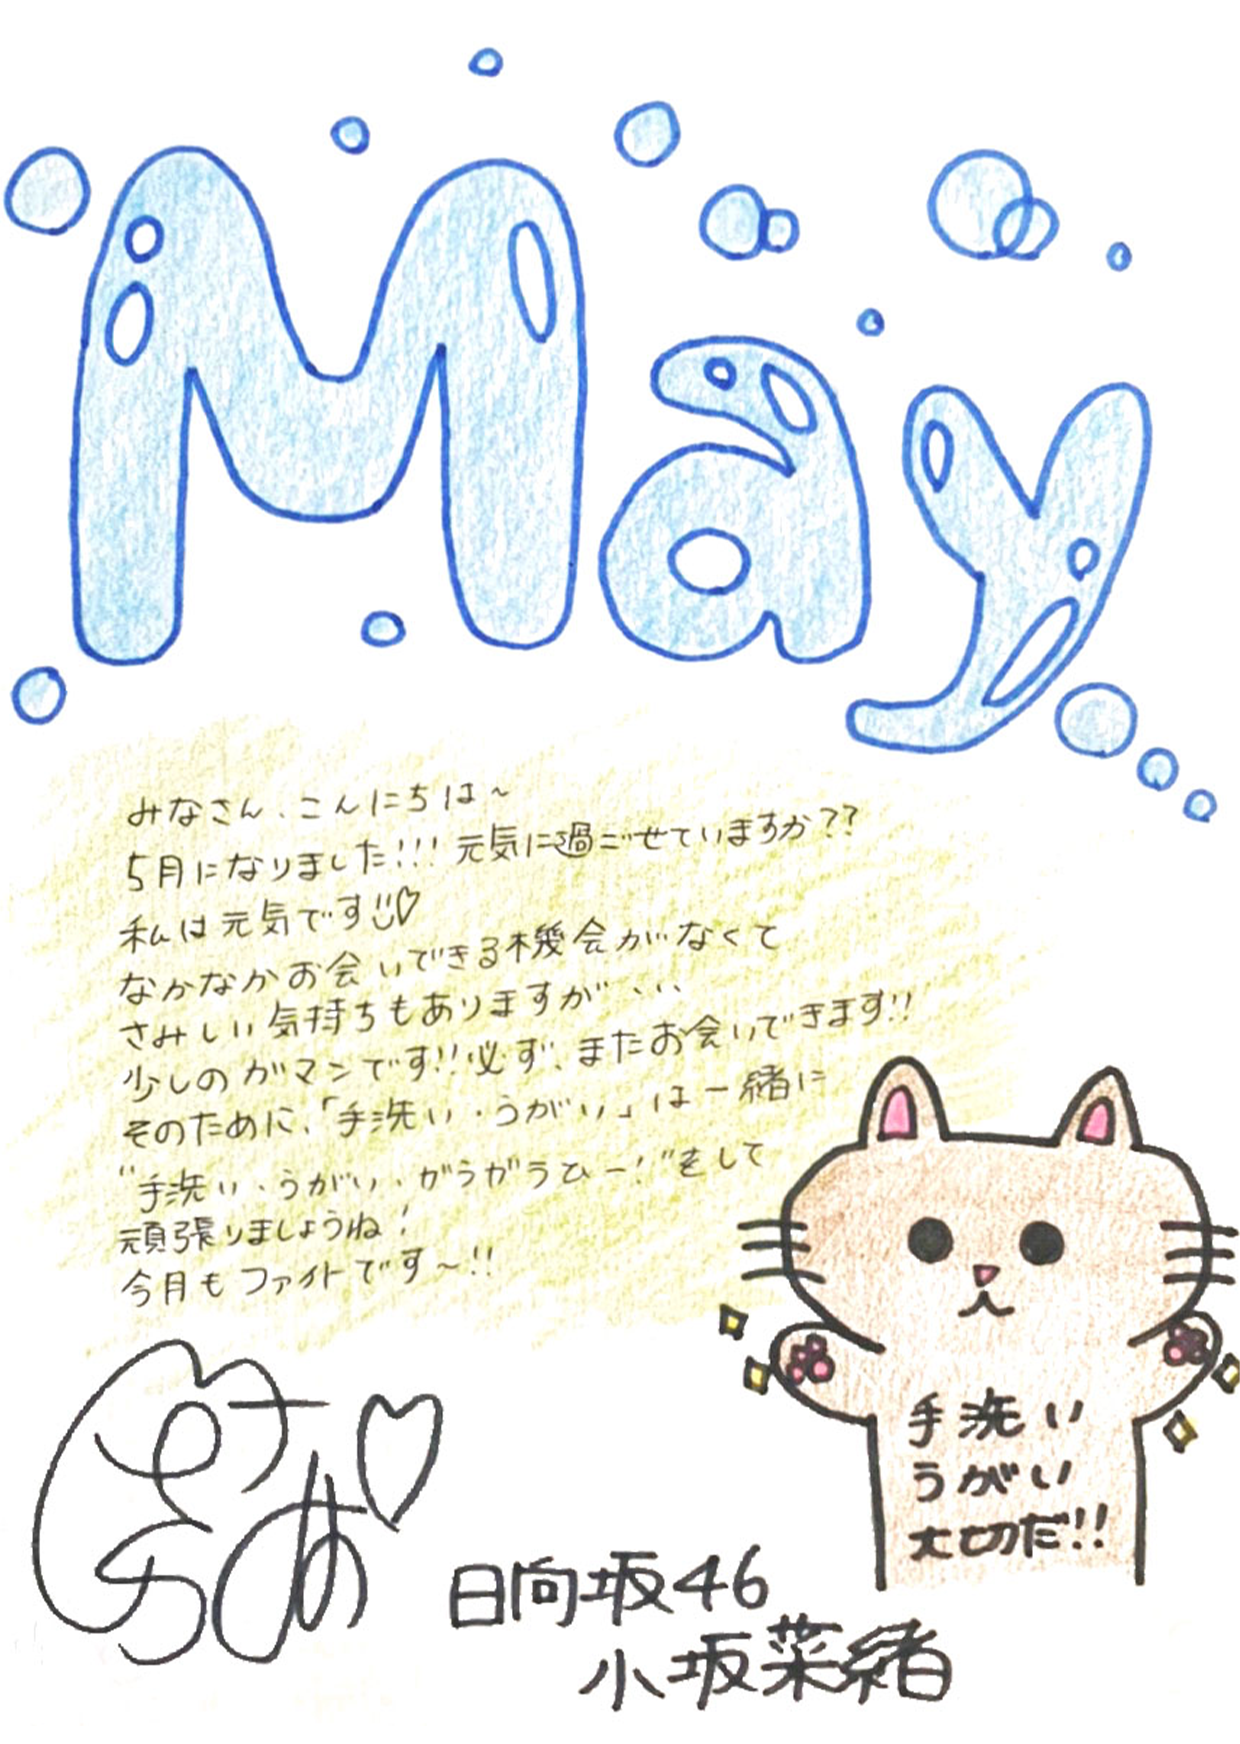 May
みなさん、こんにちは～
5月になりました!!! 元気に過ごせていますか??
私は元気です
なかなかお会いできる機会がなくて
さみしい気持ちもありますが、、、
少しのガマンです!!必ず、またお会いできます!!
そのために、「手洗い・うがい」は一緒に
"手洗い・うがい・がうがうひー!"をして
頑張りましょうね!
今月もファイトです～!!
手洗い
うがい
大切だ!!
日向坂46
小坂菜緒